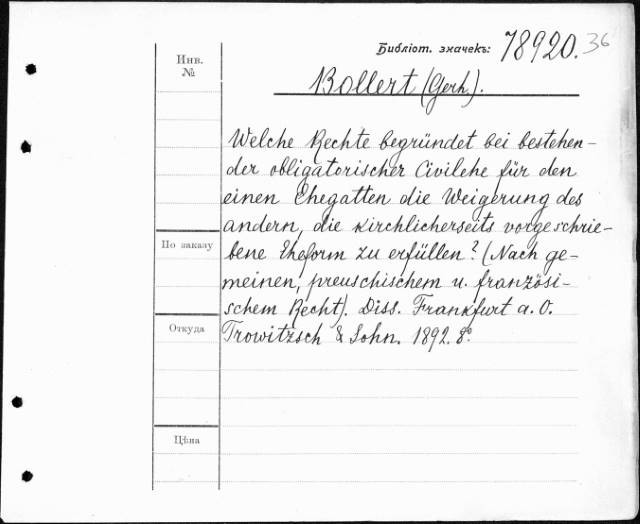 Библіот. значекъ: 78920. 36
Инв.
№
Bollert (Gerh.).
Welche Rechte begründet bei bestehen-
der obligatorischer Civilehe für den
einen Ehegatten die Weigerung des
andern, die kirchlicherseits vorgeschrie-
По заказу
bene Eheform zu erfüllen? (Nach ge-
meinen, preuschischem u. französi-
schem Recht). Diss. Frankfurt a. O.
Откуда
Trowitzsch & Sohn. 1892. 8º.
Цѣна